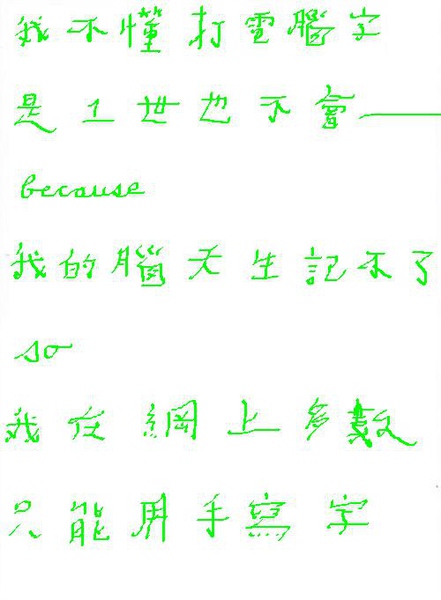 我不懂打電腦字
是1世也不會——
because
我的腦天生記不了
so
我在網上多數
只能用手寫字